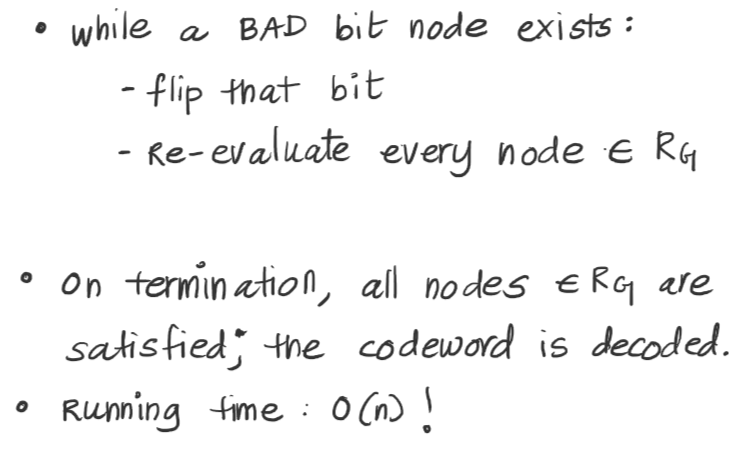 • while a BAD bit node exists:
- flip that bit
- Re-evaluate every node ∈ RG
• On termination, all nodes ∈ RG are
satisfied; the codeword is decoded.
• Running time: O(n)!